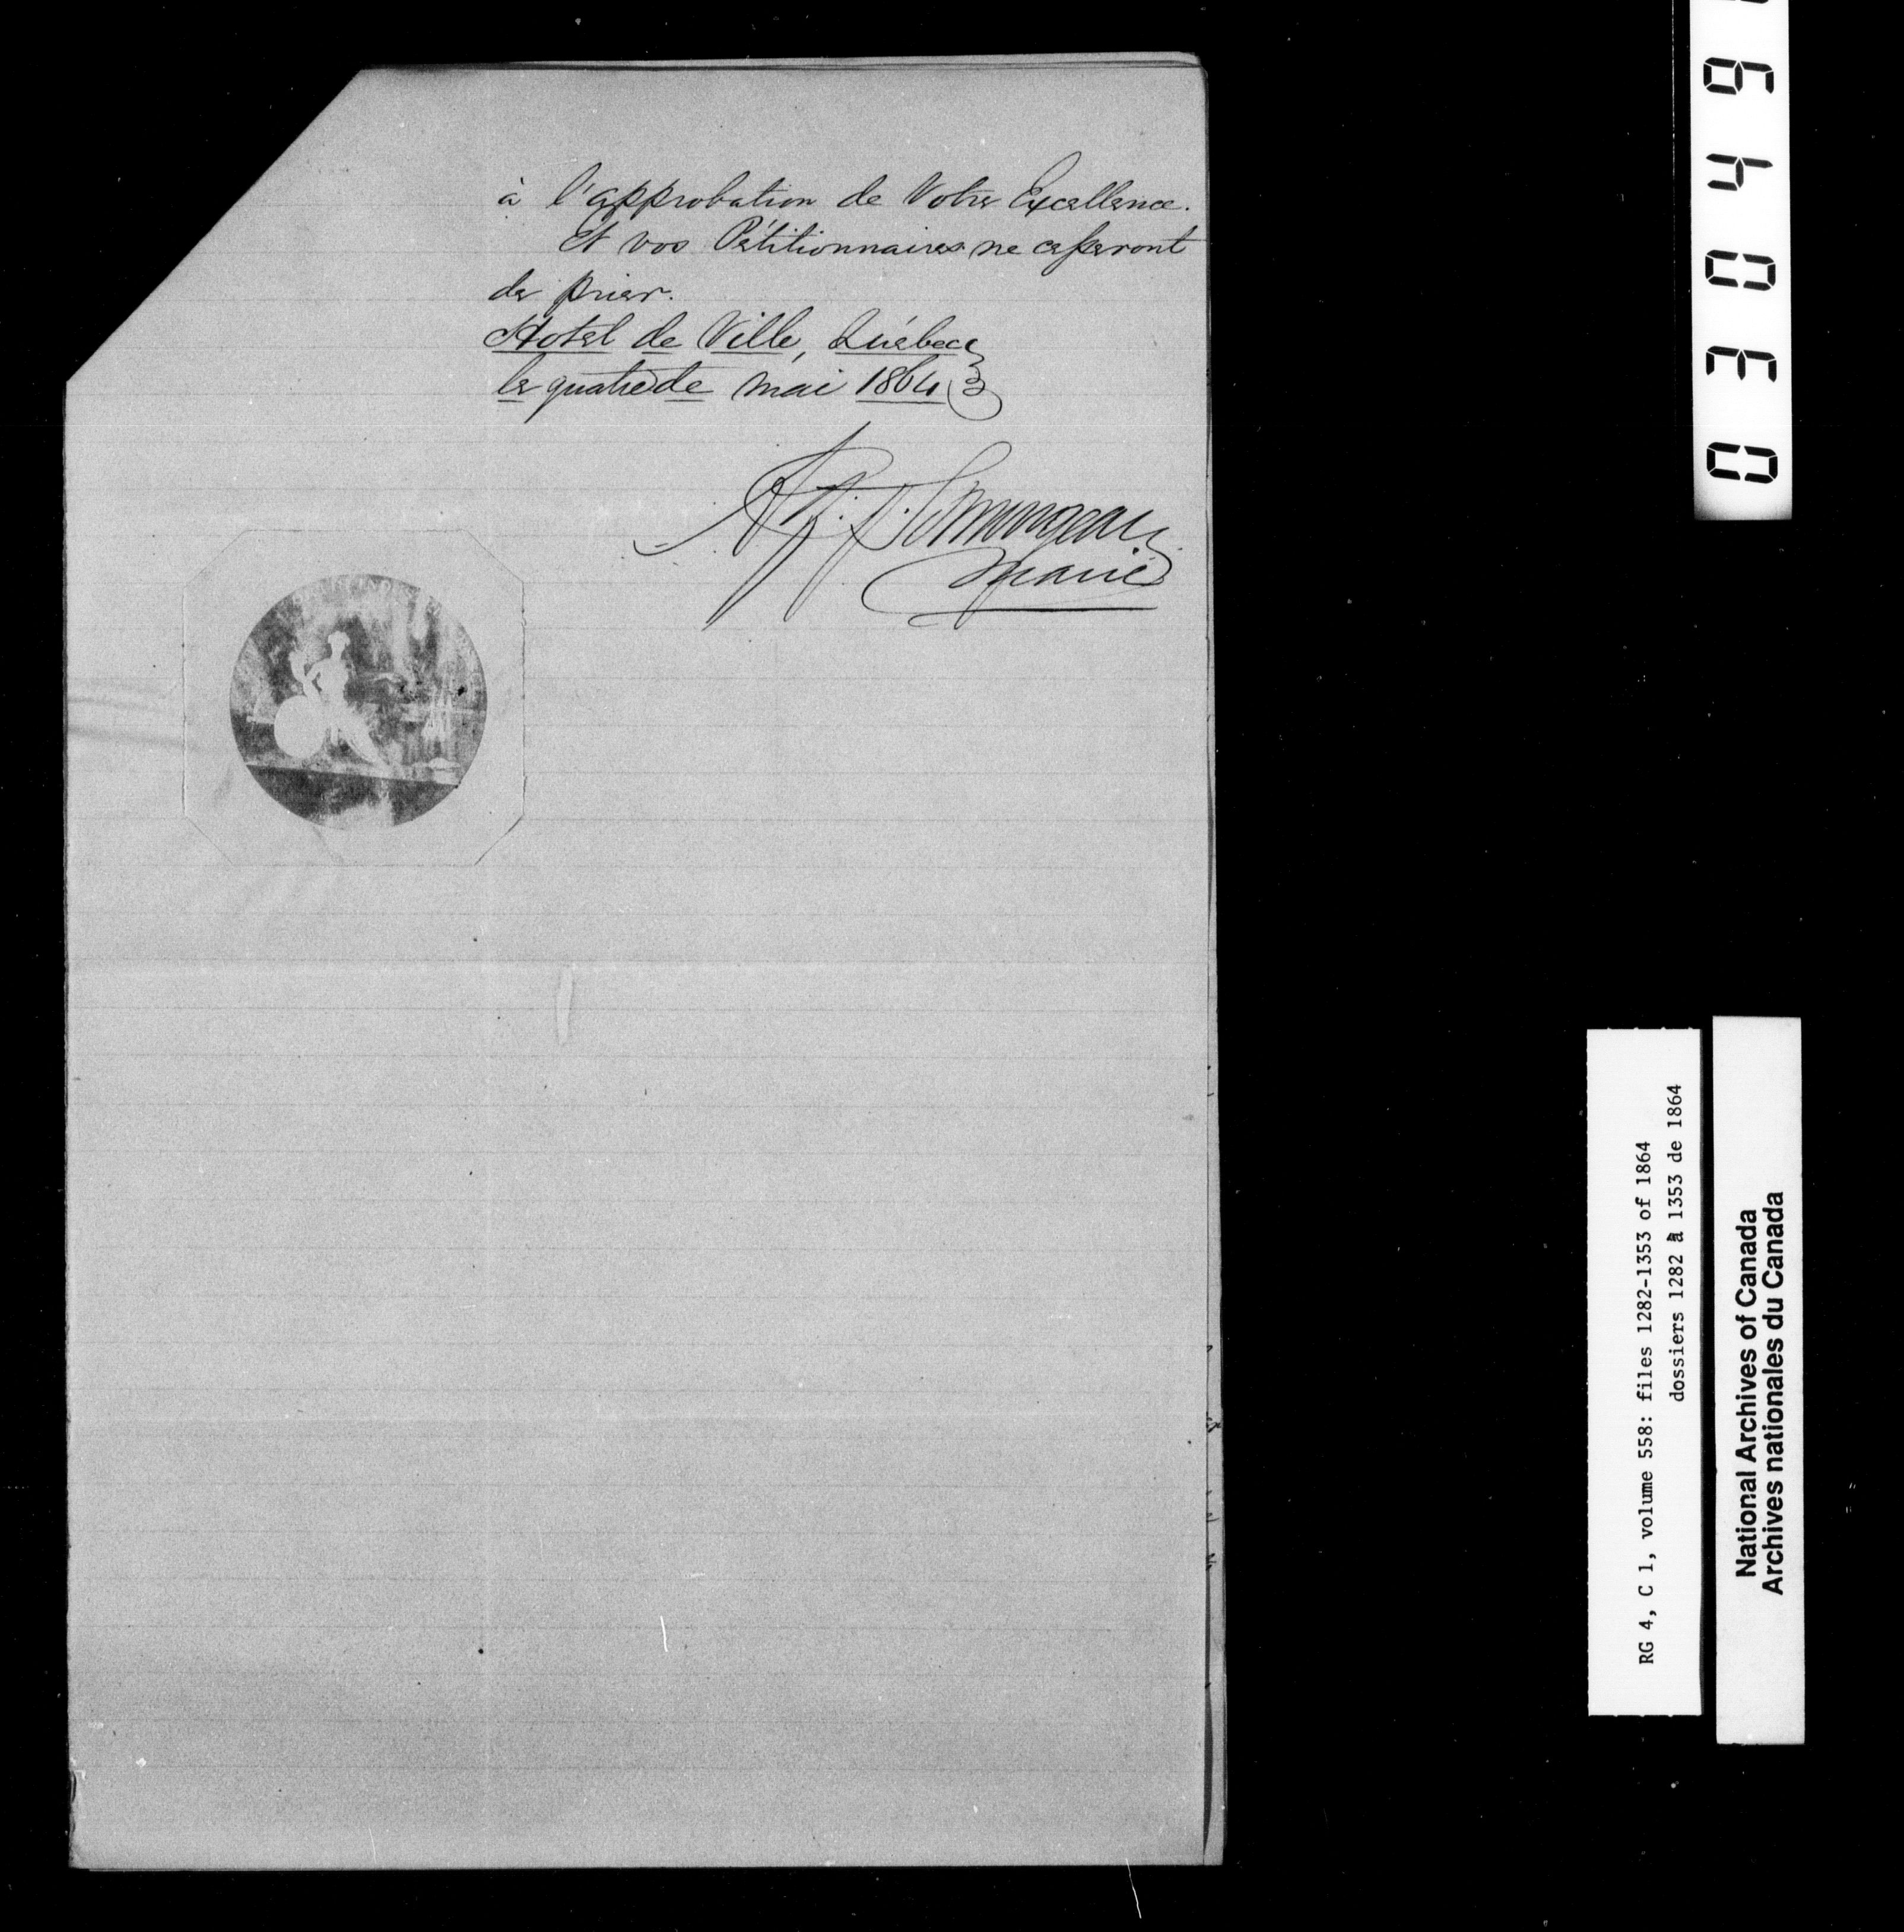 à l'approbation de Votre Excellence.
Et vos Pétitionnaires ne cesseront
de prier.
Hotel de Ville, Québec
le quatre de mai 1864
Maire
03049
RG 4, C 1, volume 558: files 1282-1353 of 1864
dossiers 1282 à 1353 de 1864
National Archives of Canada
Archives nationales du Canada